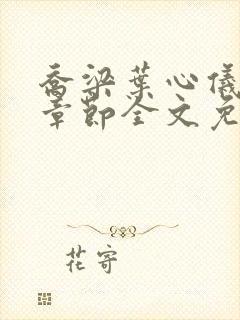 乔梁叶心仪
章节全文免
花寄